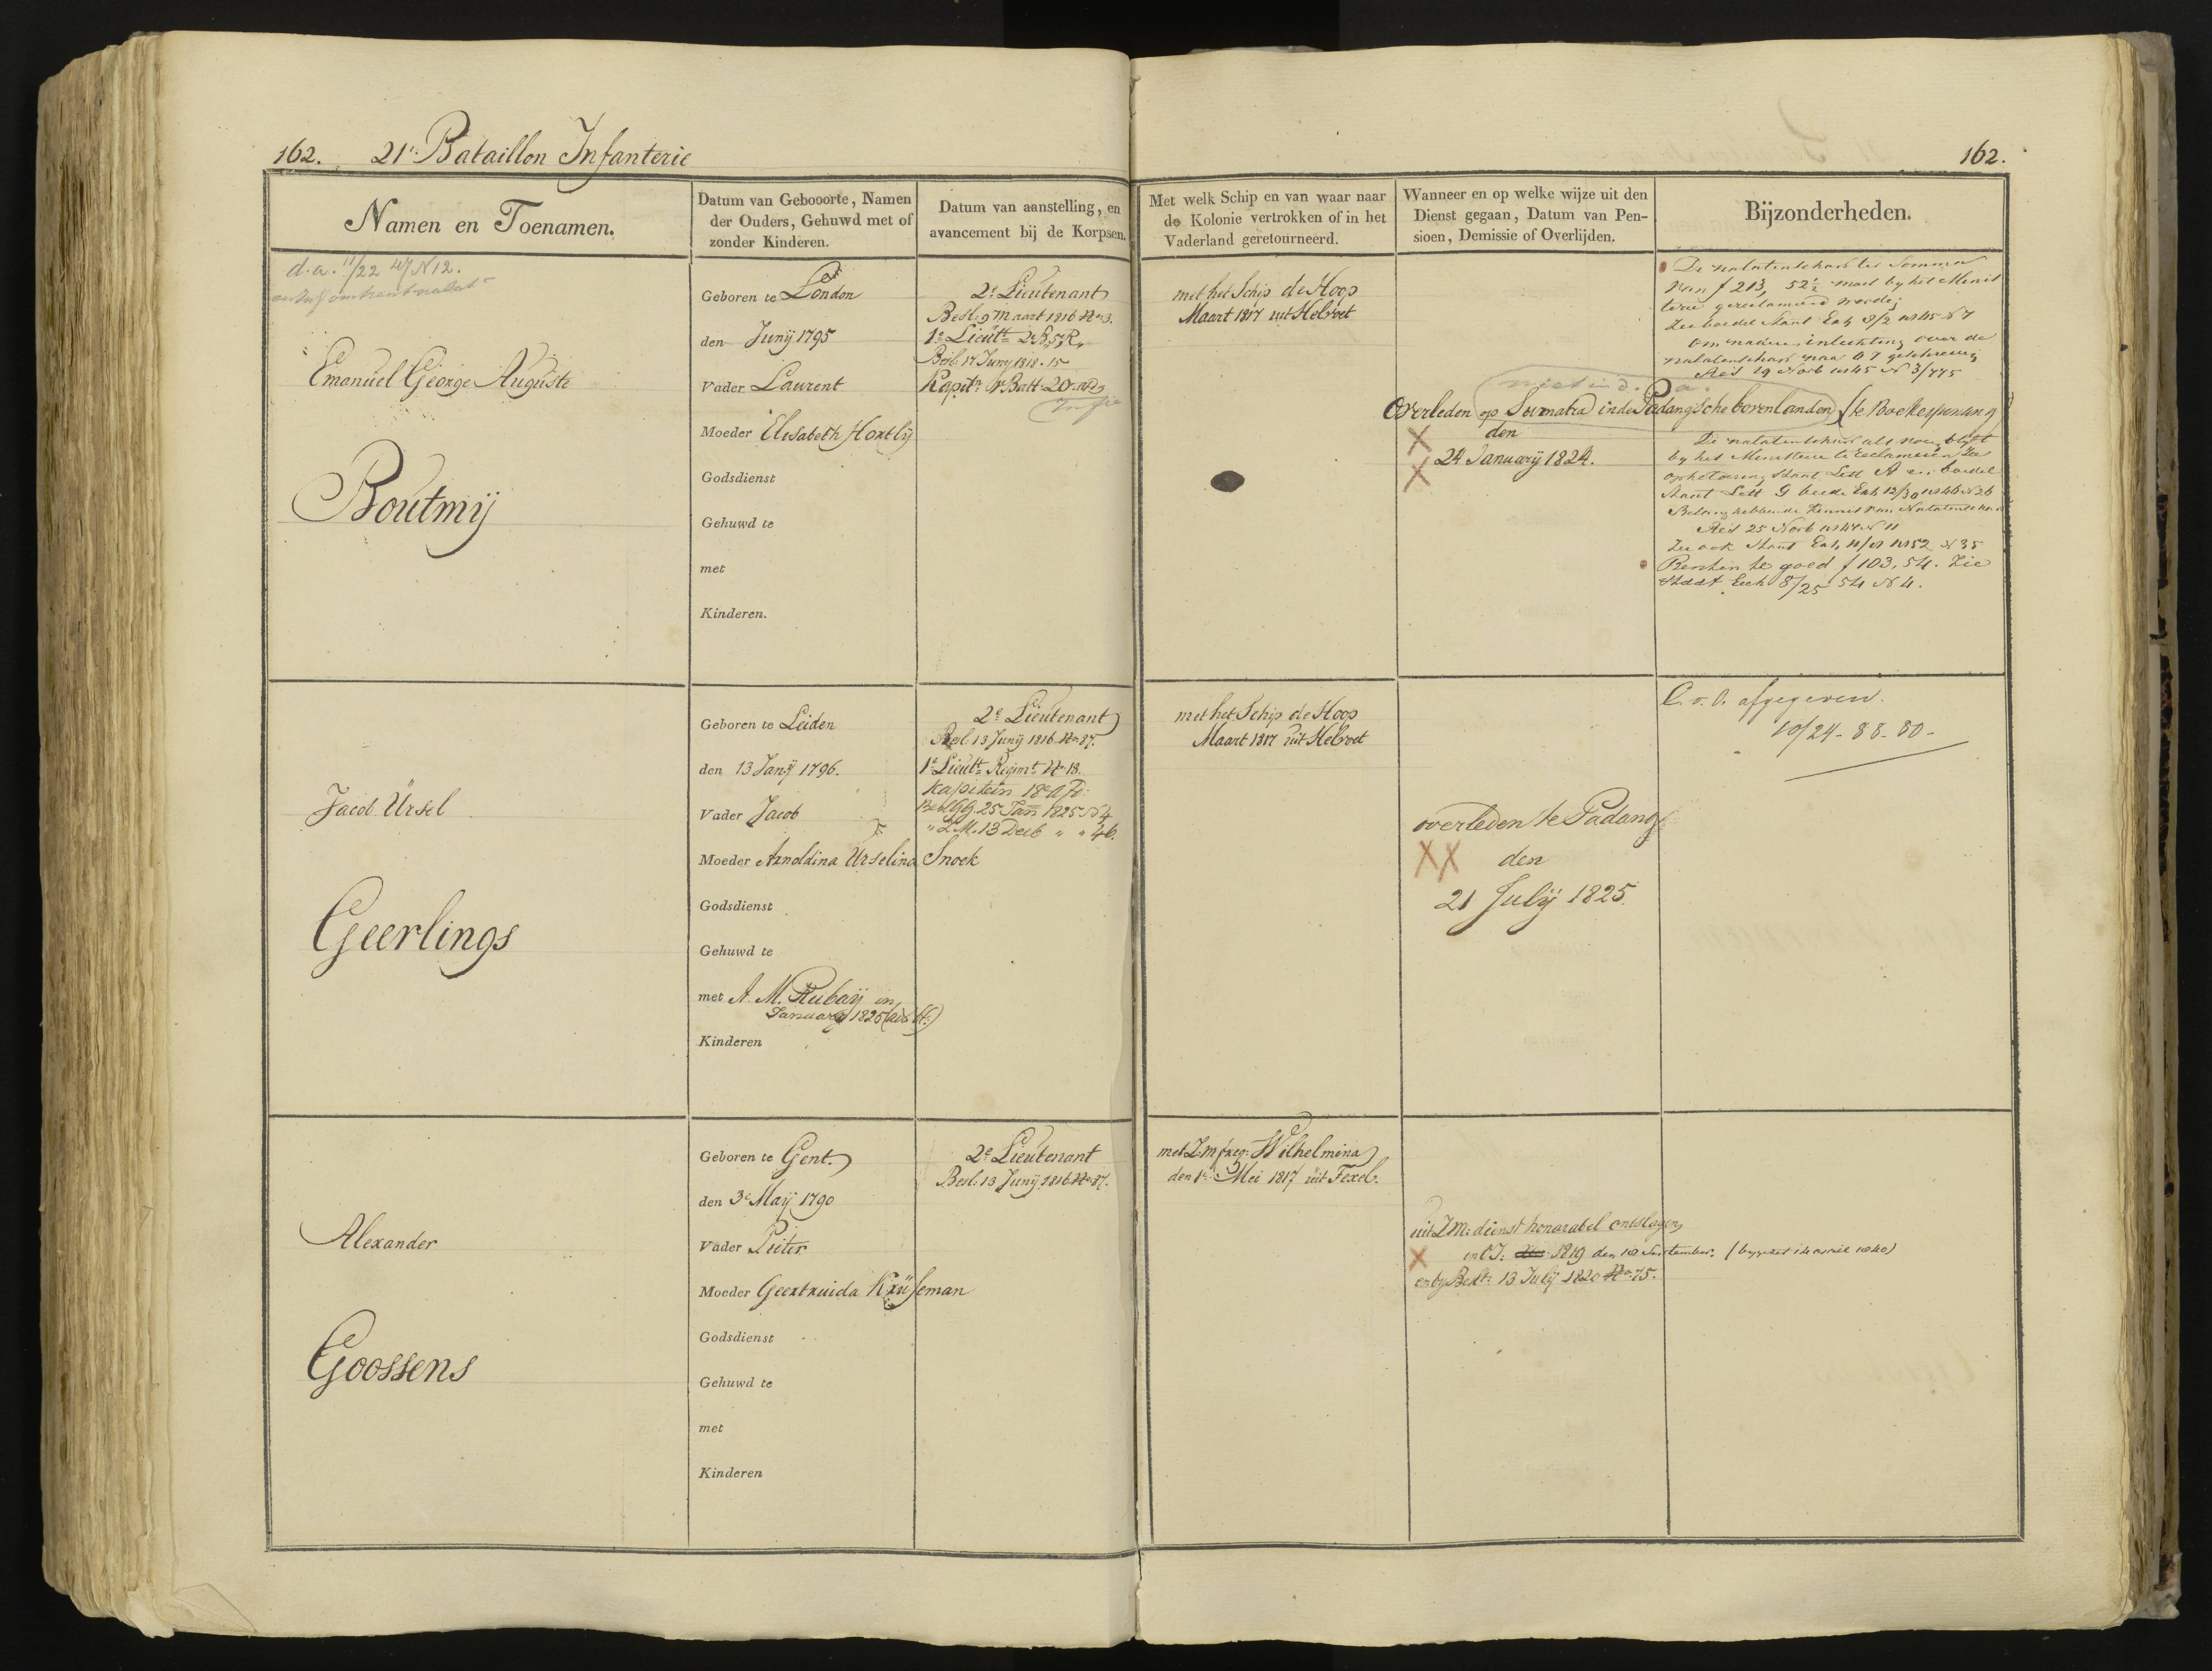 162. 21e Bataillon Infanterie
162.
Namen en Toenamen.
Datum van Gebooorte, Namen
der Ouders, Gehuwd met of
zonder Kinderen.
Datum van aanstelling, en
avancement bij de Korpsen.
Met welk Schip en van waar naar
de Kolonie vertrokken of in het
Vaderland geretourneerd.
Wanneer en op welke wijze uit den
Dienst gegaan, Datum van Pen-
sioen, Demissie of Overlijden.
Bijzonderheden.
d.a. 11/22 47 N 12.
omtrent nalat
Emanuel George Auguste
Boutmij
Geboren te London
den Junij 1795
Vader Laurent
Moeder Elisabeth Hortlij
Godsdienst
Gehuwd te
met
Kinderen.
2e Lieutenant
Besl: 9 Maart 1816 No 3.
1e Lieutt
Besl: 17 Junij 1818. 15
Kapitn Batt: 20
met het Schip de Hoop
Maart 1817 uit Helvoet
niet in d. a.
Overleden op Sumatra in de Padangsche bovenlanden (te Boekespenang)
den
24 January 1824.
De nalatenschap ter Somma
van f 213, 52½ moet by het Minis
terie gereclameerd worden;
Zie boedel Staat Exh 8/2 1845 N 7
om nadere inlichting over de
nalatenschap naar O I geschreven,
Reis 19 Novb 1845 N 3/775
De nalatenschap als nog blyft
by het Ministerie te reclameren Zie
Staat Lett A en boedel
Staat Lett G beide Exh 12/30 1846 N 26
Belanghebbende Kennis van Nalatenschap
25 Novb 1847 N 11
Zie ook Staat Exh 1852 N 35
te goed f 103,54. Zie
Staat Exh 8/25 54 N 4.
Jacob Ursel
Geerlings
Geboren te Leiden
den 13 Janij 1796.
Vader Jacob
Moeder Arnoldina Urselina Snoek
Godsdienst
Gehuwd te
met A. M. Rubay in
January 1825
Kinderen
2e Lieutenant
Besl: 13 Junij 1816 No 87.
1e Lieutt Regimt No 18.
Kapitein 18e Afd:
Besl GG. 25 Jan 1825 N 4
" Z.M. 13 Decb " " 46.
met het Schip de Hoop
Maart 1817 uit Helvoet
overleden te Padang
den
21 July 1825.
C. v. O. afgegeven.
10/24 - 88 - 80 -
Alexander
Goossens
Geboren te Gent.
den 3e Maij 1790
Vader Pieter
Moeder Geertruida Kruseman
Godsdienst
Gehuwd te
met
Kinderen
2e Lieutenant
Besl: 13 Junij 1816 No 87.
met Z:m freg: Wilhelmina
den 1e Mei 1817 uit Texel.
uit Z.M: dienst honorabel ontslagen
in O.I: 1819 den 18 September. (bygezet 14 april 1840)
en by Beslt: 13 July 1820 No 75.